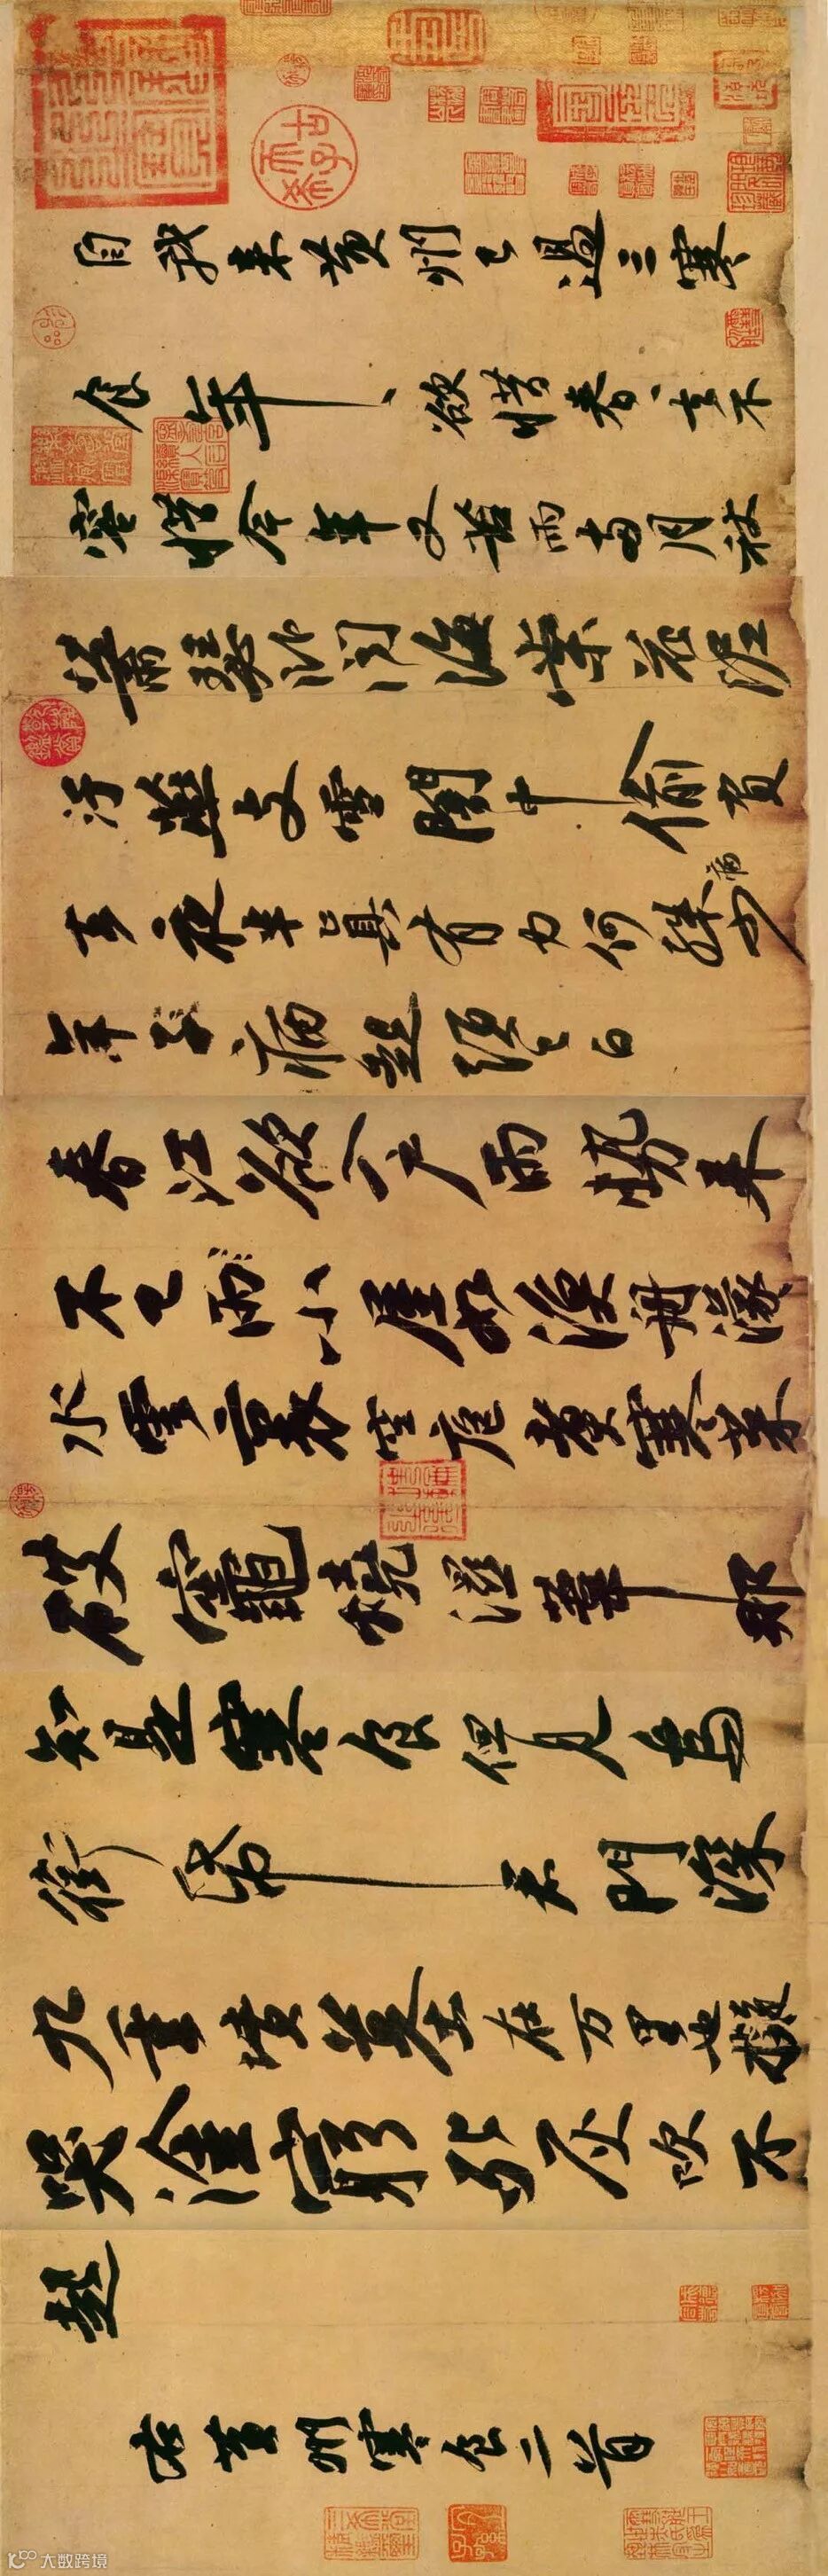 自我来黄州已過三寒
食年〻欲惜春〻去不
容惜今年又苦雨兩月秋
蕭瑟卧聞海棠花泥
汙燕支雪闇中偷負
去夜半真有力何殊病少
年子病起須已白
春江欲入户雨勢来
不已雨小屋如漁舟濛〻
水雲裏空庖煮寒菜
破竈燒濕葦那
知是寒食但見烏
銜帋君門深
九重墳墓在万里也擬
哭塗窮死灰吹不
起
右黄州寒食二首
大数跨境